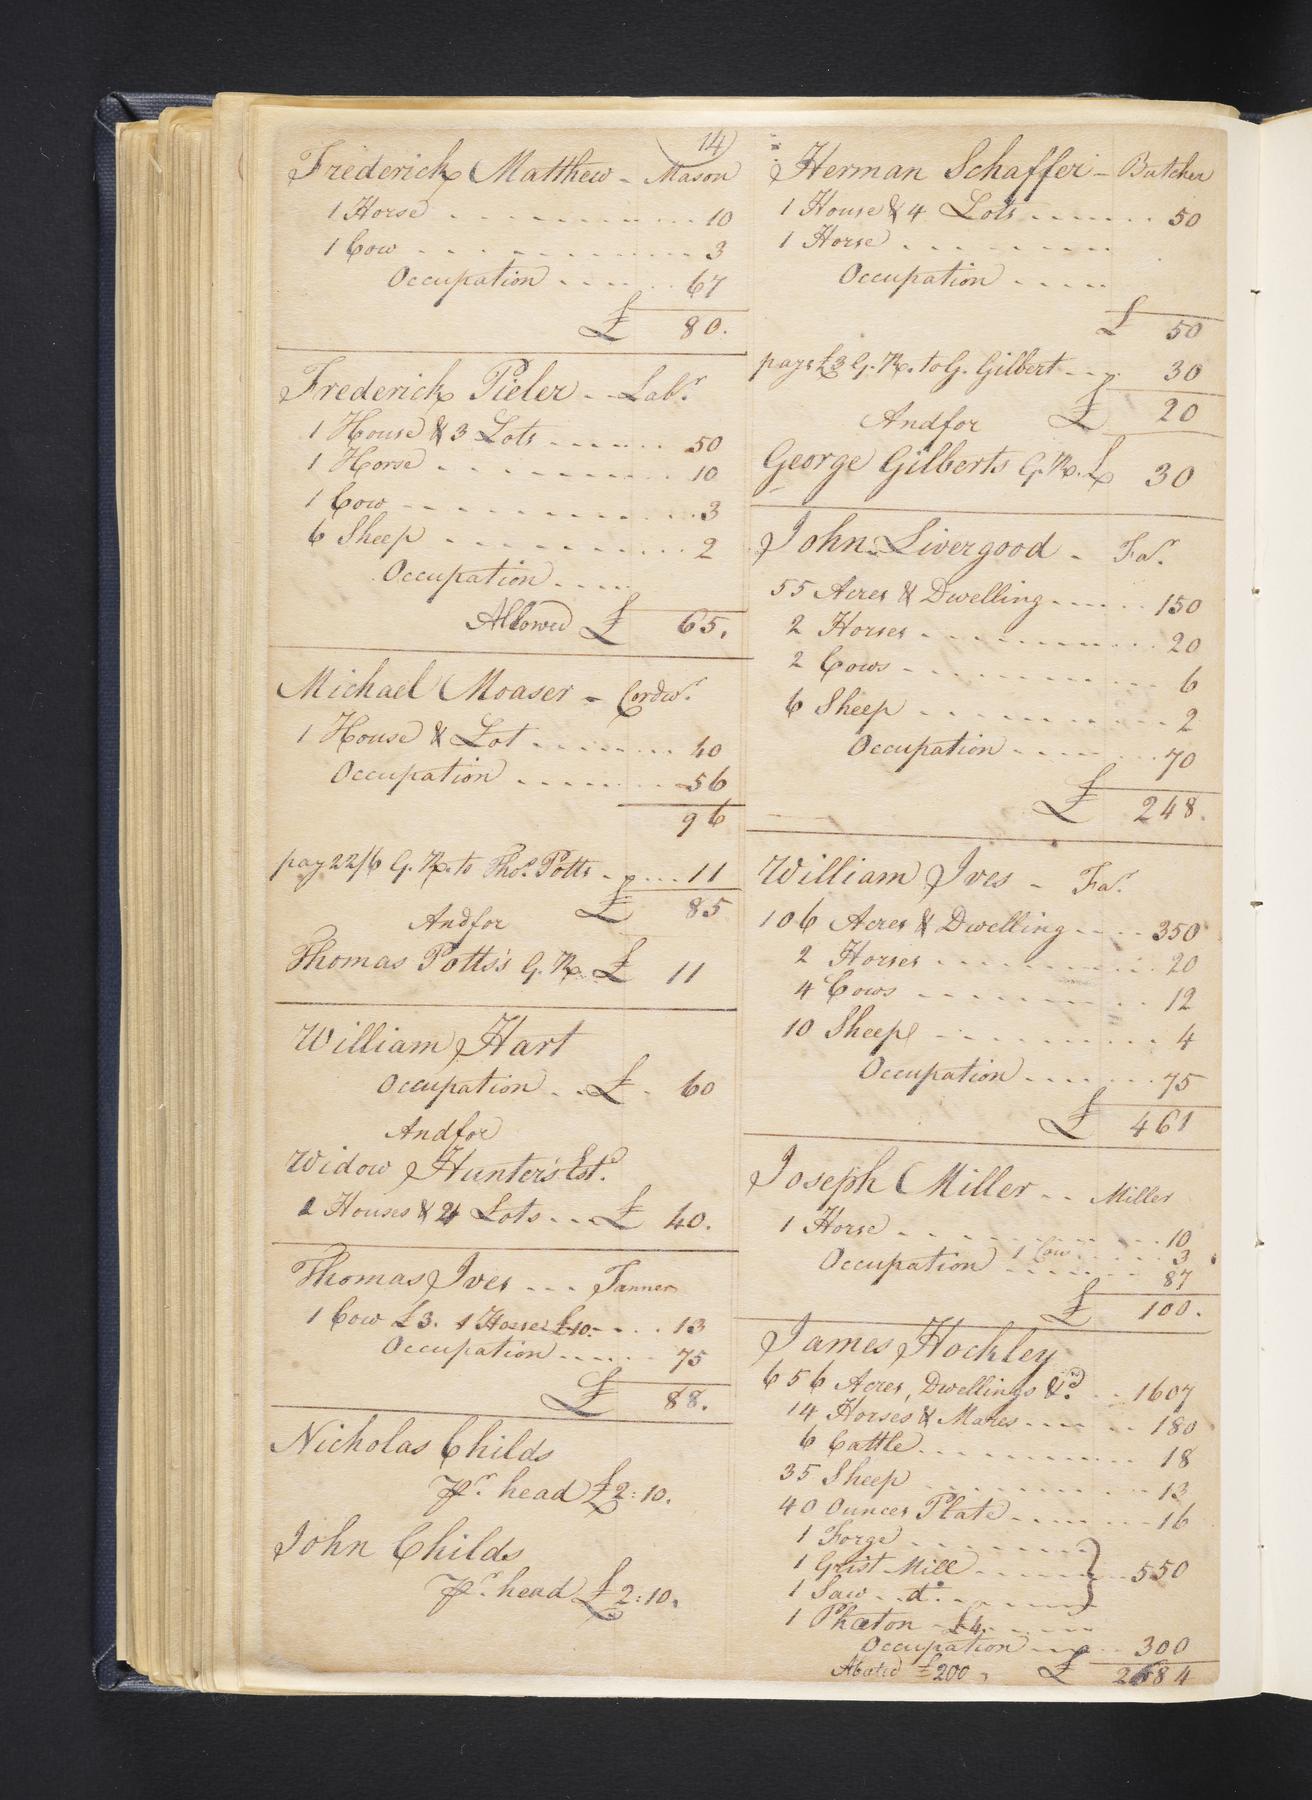 14
Frederick Matthew - Mason
1 Horse 10
1 Cow 3
Occupation 67
£ 80.
Frederick Pieler - Labr.
1 House & 3 Lots 50
1 Horse 10
1 Cow 3
6 Sheep 2
Occupation
Allowed £ 65.
Michael Moaser - Cordwr.
1 House & Lot 40
Occupation 56
96
pay 22/6 G. R. to Thos. Potts 11
£ 85
And for
Thomas Potts's G. R. £ 11
William Hart
Occupation £ 60
And for
Widow Hunter's Estd.
2 Houses & 4 Lots £ 40.
Thomas Ives - Tanner
1 Cow £3. 1 Horse £10. 13
Occupation 75
£ 88.
Nicholas Childs
Pr. head £2:10.
John Childs
Pr. head £2:10.
Herman Schaffer - Butcher
1 House & 4 Lots 50
1 Horse
Occupation
£ 50
pays £3 G. R. to G. Gilbert 30
£ 20
And for
George Gilberts G. R. £ 30
John Livergood - Far.
55 Acres & Dwelling 150
2 Horses 20
2 Cows 6
6 Sheep 2
Occupation 70
£ 248.
William Ives - Far.
106 Acres & Dwelling 350
2 Horses 20
4 Cows 12
10 Sheep 4
Occupation 75
£ 461
Joseph Miller - Miller
1 Horse 10
1 Cow 3
Occupation 87
£ 100.
James Hockley
656 Acres, Dwellings &c. 1607
14 Horses & Mares 180
6 Cattle 18
35 Sheep 13
40 Ounces Plate 16
1 Forge
1 Grist Mill 550
1 Saw do.
1 Phæton £4
Occupation 300
Abated £200, £ 2684